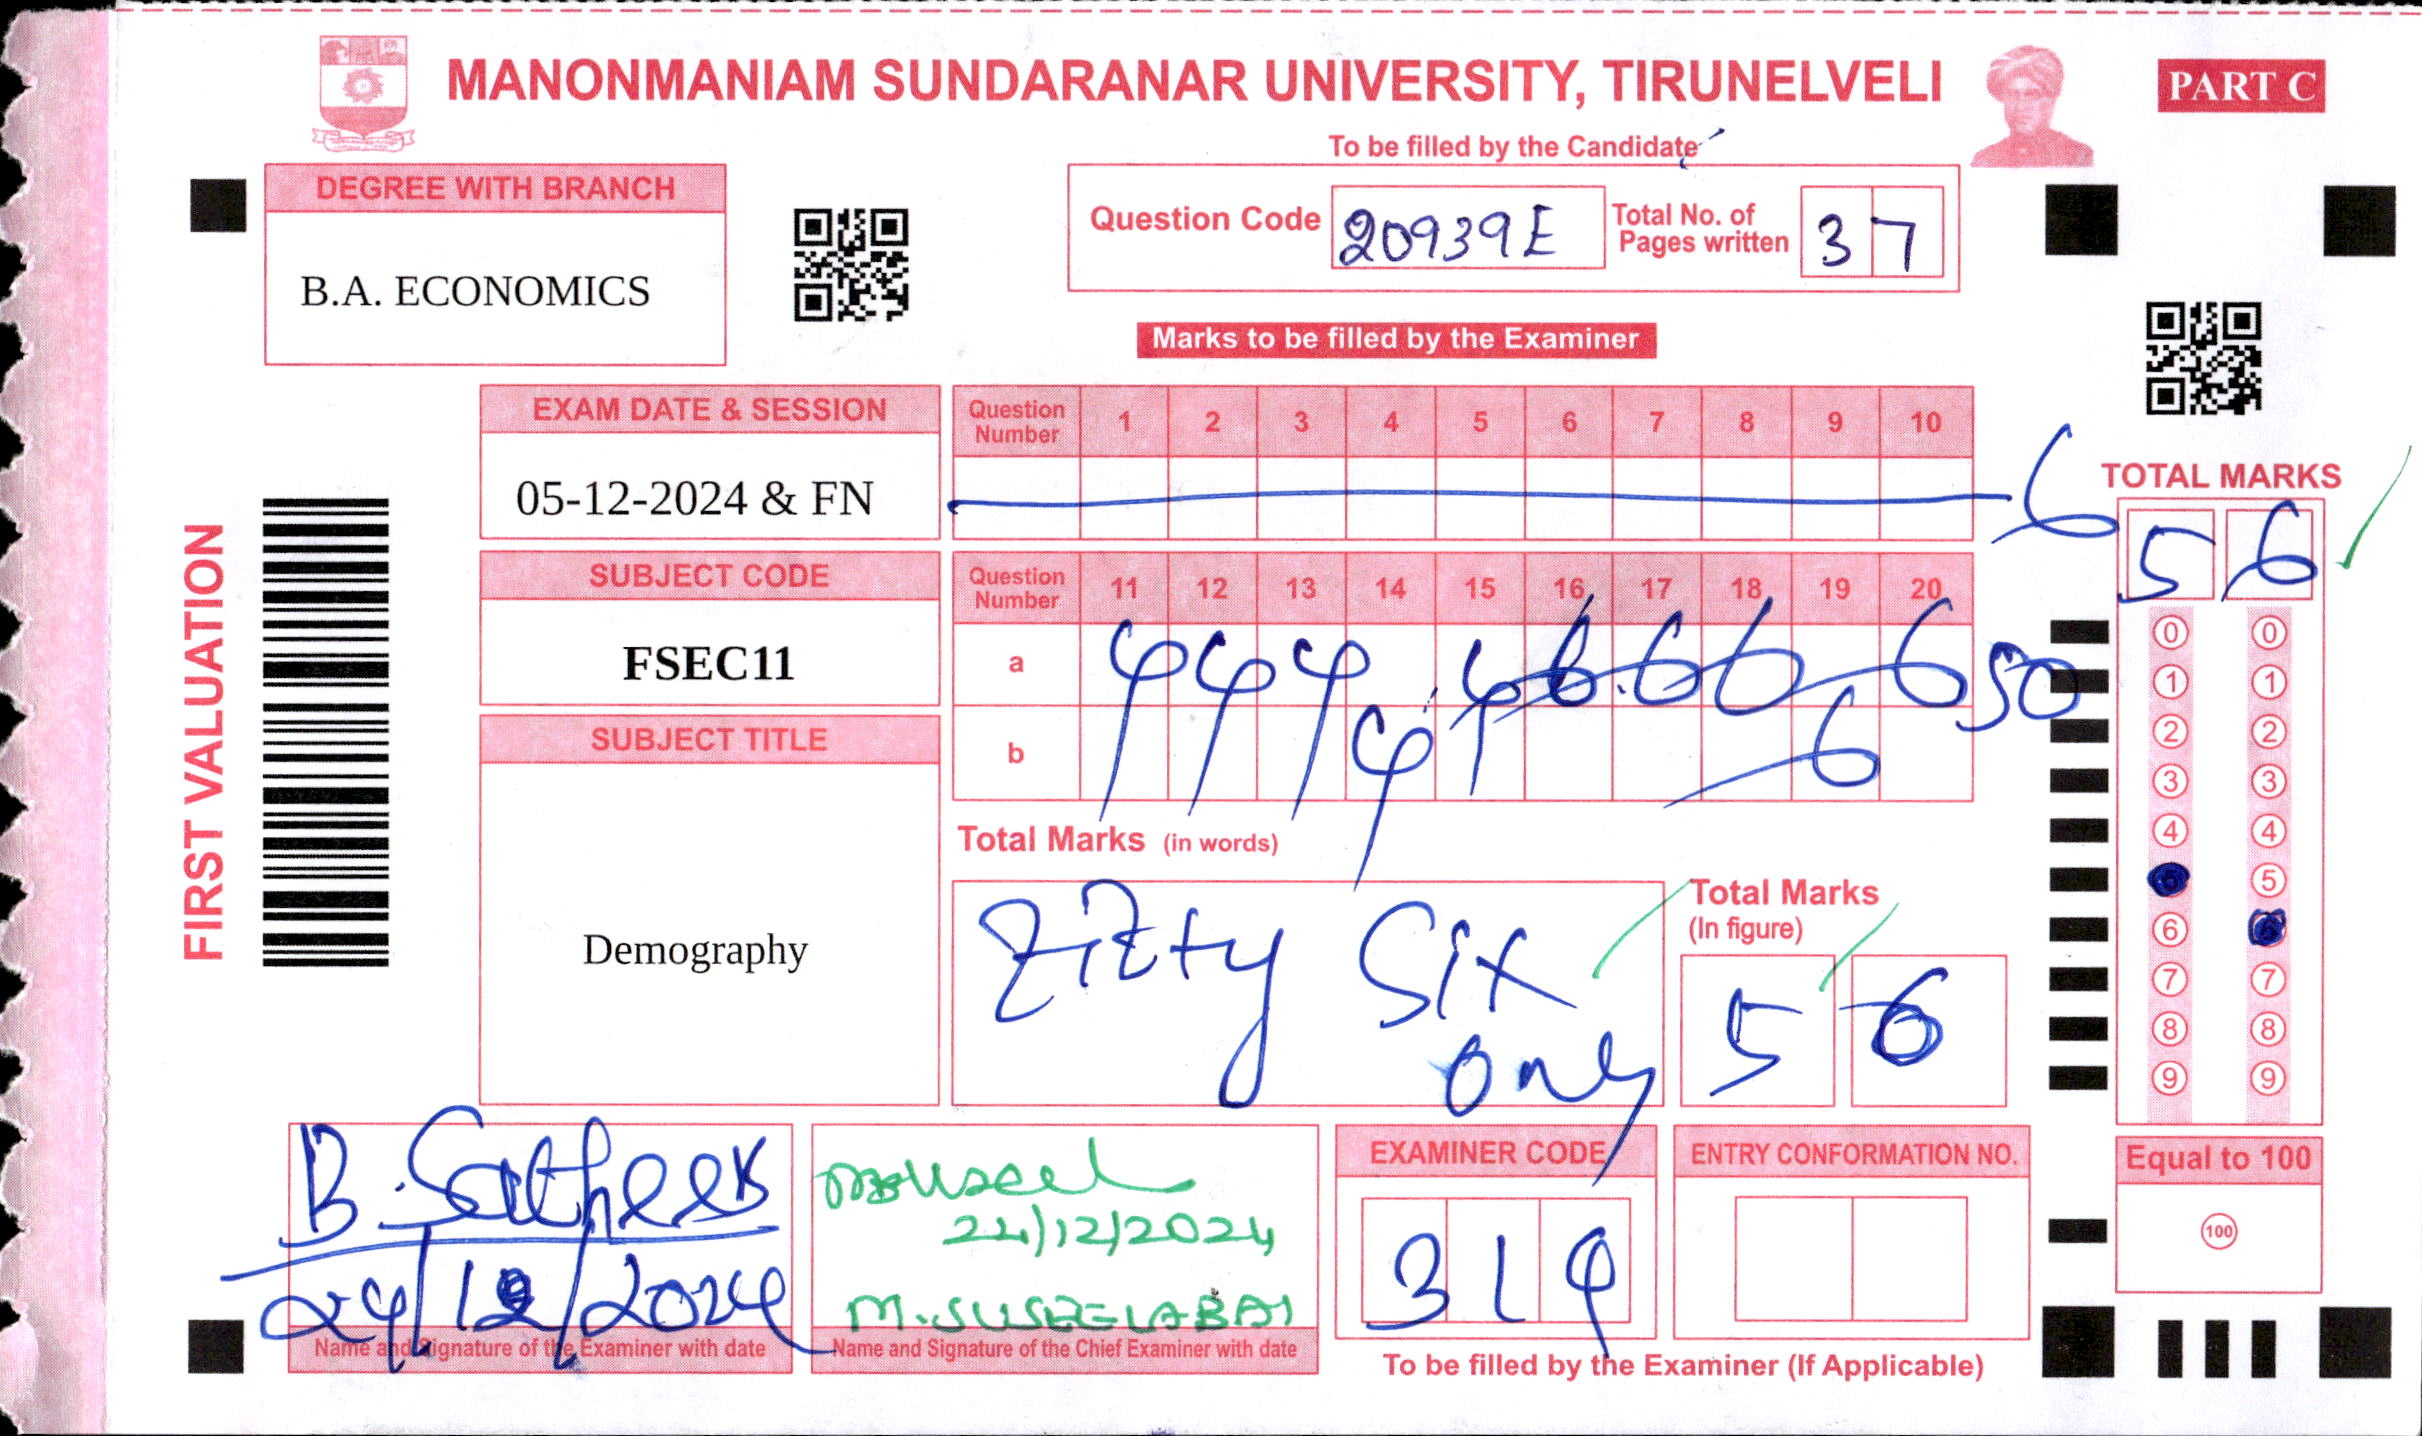 MANONMANIAM SUNDARANAR UNIVERSITY, TIRUNELVELI
PART C
To be filled by the Candidate
DEGREE WITH BRANCH
B.A. ECONOMICS
Question Code 20939E Total No. of Pages written 37
Marks to be filled by the Examiner
EXAM DATE & SESSION
05-12-2024 & FN
Question Number 1 2 3 4 5 6 7 8 9 10
6
TOTAL MARKS
5 6
SUBJECT CODE
FSEC11
Question Number 11 12 13 14 15 16 17 18 19 20
a 4 4 4 4 6 6 6 6 50
b 4 6
SUBJECT TITLE
Demography
FIRST VALUATION
Total Marks (in words)
Fifty Six
only
Total Marks
(In figure)
5 6
0 0
1 1
2 2
3 3
4 4
5 5
6 6
7 7
8 8
9 9
Equal to 100
100
B. Satheesh
24/12/2024
Name and Signature of the Examiner with date
24/12/2024
M. SUSEELABAI
Name and Signature of the Chief Examiner with date
EXAMINER CODE
3 1 4
ENTRY CONFORMATION NO.
To be filled by the Examiner (If Applicable)